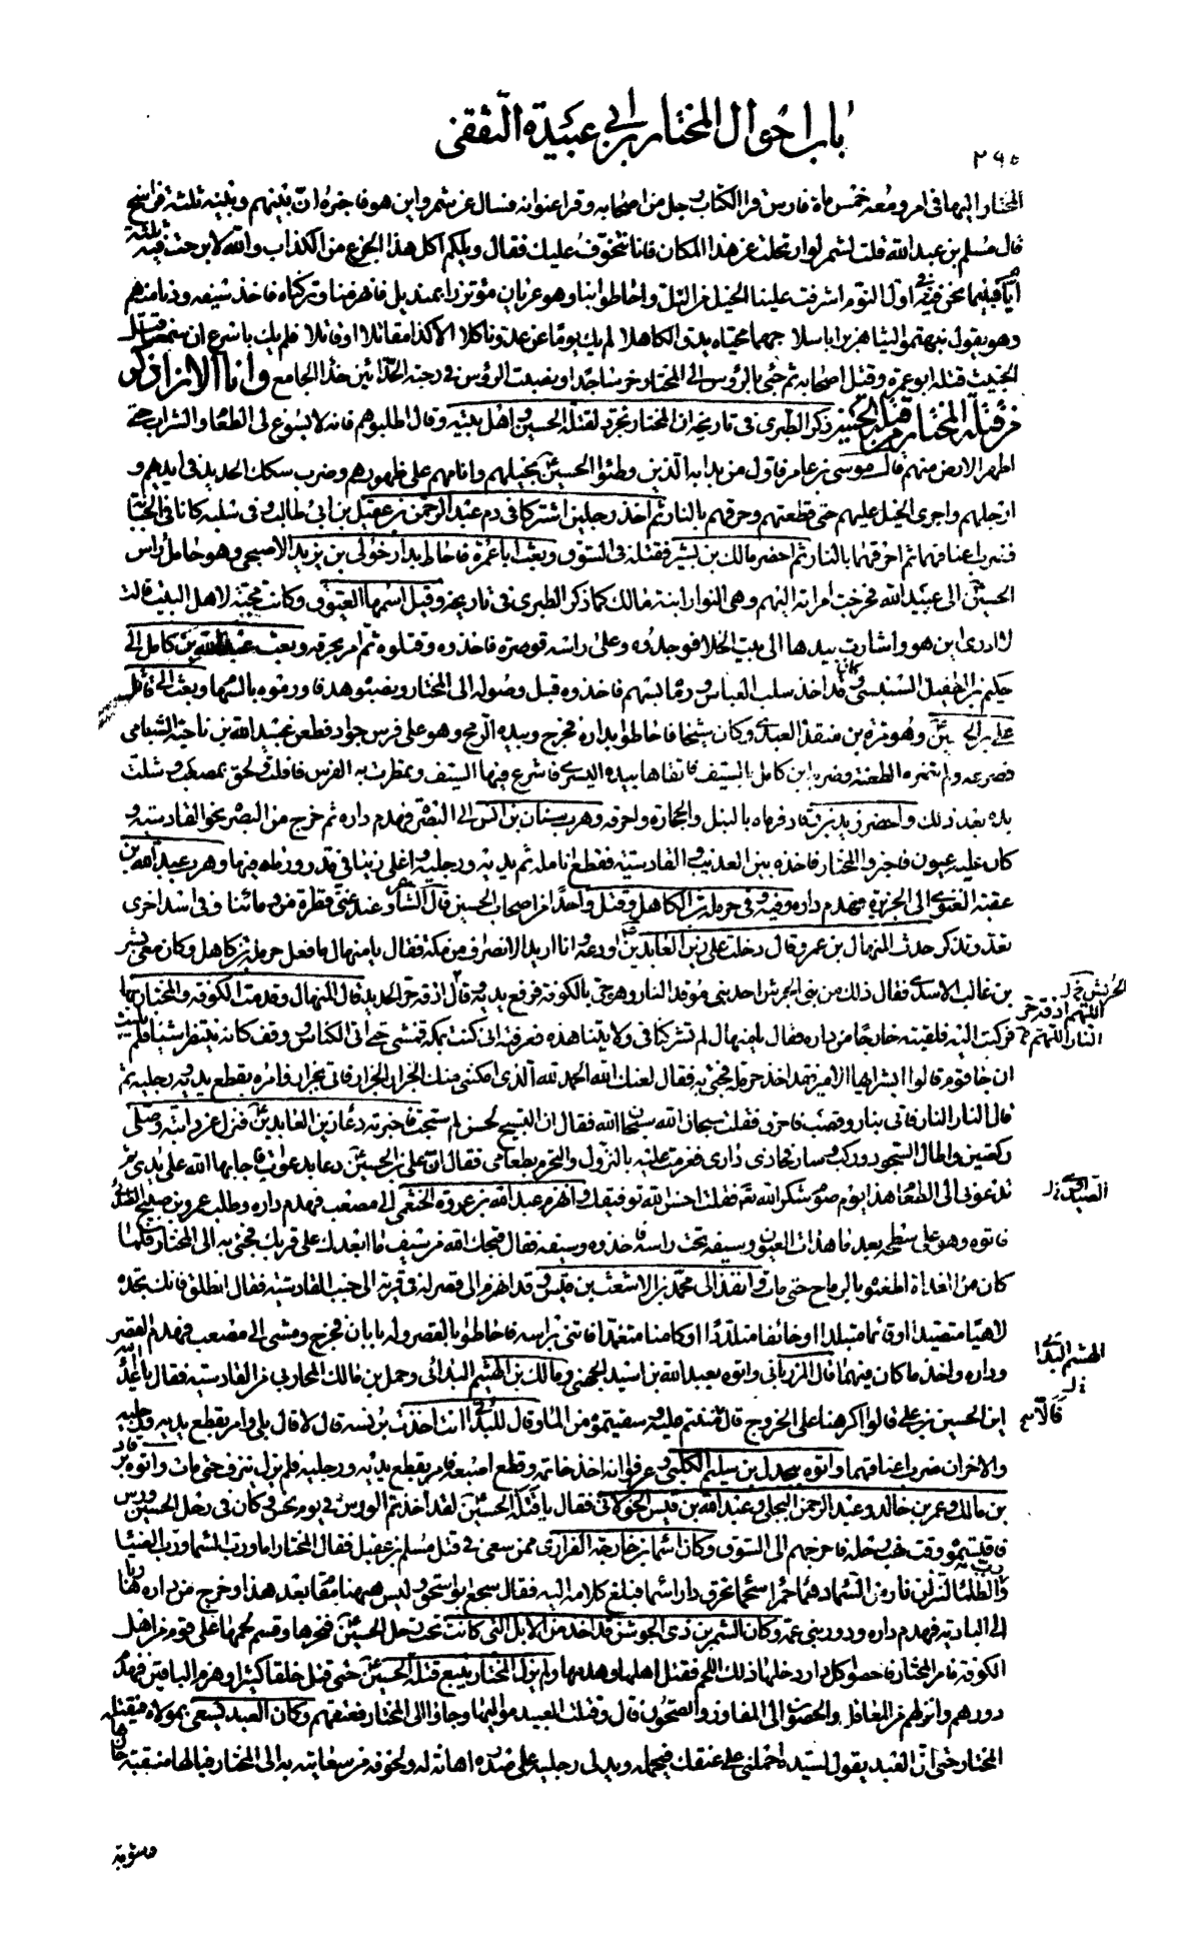 باب احوال المختار بن ابي عبيدة الثقفي
٢٩٥
المختار اليها في امر ومعه خمس مأة فارس فقرأ الكتاب رجل من اصحابه وقرأ عنوانه فسال عن شمر واين هو فاخبره ان بينهم وبينه ثلثة فراسخ
قال مسلم بن عبد الله قلت لشمر لو ارتحلت عن هذا المكان فانا نتخوف عليك فقال ويلكم اكل هذا الجزع من الكذاب والله لا برحت فيه ثلثة
ايام فبينما نحن في اول النوم اشرفت علينا الخيل من التل واحاطوا بنا وهو عريان مؤتزر بمنديل فانهزمنا وتركناه فاخذ سيفه ودنا منهم
وهو يقول نبهتم ليثا هزبرا باسلا جهما محياه يدق الكاهلا لم يك يوما عن عدو ناكلا الا كذا مقاتلا او قاتلا فلم يك باسرع ان سمعنا قتل
الخبيث قتله ابو عمرة وقتل اصحابه ثم جئ بالرؤس الى المختار فخر ساجدا ونصبت الرؤس في رحبة الحذائين حذا الجامع وانا الان اذكر
من قتله المختار من قتلة الحسين ذكر الطبري في تاريخه ان المختار تجرد لقتلة الحسين واهل بيته وقال اطلبوهم فانه لا يسوغ لي الطعام والشراب حتى
اطهر الارض منهم قال موسى بن عامر فاول من بدا به الذين وطئوا الحسين بخيلهم وانامهم على ظهورهم وضرب سكك الحديد في ايديهم و
ارجلهم واجرى الخيل عليهم حتى قطعتهم وحرقهم بالنار ثم اخذ رجلين اشتركا في دم عبد الرحمن بن عقيل بن ابي طالب وفي سلبه كانا في الجبانة
فضرب اعناقهما ثم احرقهما بالنار ثم احضر مالك بن بشير فقتله في السوق وبعث ابا عمرة فاحاط بدار خولي بن يزيد الاصبحي وهو حامل راس
الحسين الى عبيد الله فخرجت امراته اليهم وهي النوار ابنة مالك كما ذكر الطبري في تاريخه وقيل اسمها العيوف وكانت محبة لاهل البيت قالت
لا ادري اين هو واشارت بيدها الى بيت الخلا فوجدوه وعلى راسه قوصرة فاخذوه وقتلوه ثم امر بحرقه وبعث عبد الله بن كامل الى
حكيم بن الطفيل السنبسي وكان قد اخذ سلب العباس ورماه بسهم فاخذوه قبل وصوله الى المختار ونصبوه هدفا ورموه بالسهام وبعث الى قاتل
علي بن الحسين وهو مرة بن منقذ العبدي وكان شيخا فاحاطوا بداره فخرج وبيده الرمح وهو على فرس جواد فطعن عبيد الله بن ناجية الشبامي
فصرعه ولم تضره الطعنة وضربه ابن كامل بالسيف فاتقاها بيده اليسرى فاشرع فيها السيف وتمطرت به الفرس فافلت ولحق بمصعب وشلت
يده بعد ذلك واحضر زيد بن رقاد فرماه بالنبل والحجارة واحرقه وهرب سنان بن انس الى البصرة فهدم داره ثم خرج من البصرة نحو القادسية و
كان عليه عيون فاخبروا المختار فاخذه بين العذيب والقادسية فقطع انامله ثم يديه ورجليه واغلى زيتا في قدر ورماه فيها وهرب عبد الله بن
عقبة الغنوي الى الجزيرة فهدم داره وفيه وفي حرملة بن الكاهل وقتل واحدا من اصحاب الحسين قال الشاعر وعند غني قطرة من دمائنا وفي اسد اخرى
تعد وتذكر حدث المنهال بن عمرو قال دخلت على زين العابدين اودعه وانا اريد الانصراف من مكة فقال يا منهال ما فعل حرملة بن كاهل وكان معي بشر
بن غالب الاسدي فقال ذلك من بني الحريش احد بني موقد النار وهو حي بالكوفة فرفع يديه وقال اذقه حر الحديد قال المنهال وقدمت الكوفة والمختار بها
فركبت اليه فلقيته خارجا من داره فقال يا منهال لم تشركنا في ولايتنا هذه فعرفته اني كنت بمكة فمشى حتى اتى الكناس ووقف كانه ينتظر شيئا فلم يلبث
ان جا قوم قالوا ابشر ايها الامير فقد اخذ حرملة فجئ به فقال لعنك الله الحمد لله الذي امكنني منك الجزار الجزار فاتي بجزار فامره بقطع يديه ورجليه ثم
قال النار النار فاتي بنار وقصب فاحرق فقلت سبحان الله سبحان الله فقال ان التسبيح لحسن لم سبحت فاخبرته دعا زين العابدين فنزل عن دابته وصلى
ركعتين واطال السجود وركب وسار فحاذى داري فعزمت عليه بالنزول والتحرم بطعامي فقال ان علي بن الحسين دعا بدعوات فاجابها الله على يدي ثم
تدعوني الى الطعام هذا يوم صوم شكرا لله تعالى فقلت احسن الله توفيقك وانهزم عبد الله بن عروة الخثعمي الى مصعب فهدم داره وطلب عمرو بن صبيح
فاتوه وهو على سطحه بعد ما هدات العيون وسيفه تحت راسه فاخذوه وسيفه فقال قبحك الله من سيف ما ابعدك على قربك فجئ به الى المختار فلما
كان من الغداة اطعنوه بالرماح حتى مات وانفذ الى محمد بن الاشعث بن قيس وقد انهزم الى قصر له في قرية الى جنب القادسية فقال انطلق فانك تجده
لاهيا متصيدا او قائما متبلدا او خائفا متلددا او كامنا متغمدا فاتني براسه فاحاطوا بالقصر وله بابان فخرج ومشى الى مصعب فهدم القصر
وداره واخذ ما كان فيهما قال المرزباني واتوه بعبد الله بن اسيد الجهني ومالك بن الهيثم البدائي وحمل بن مالك المحاربي من القادسية فقال يا اعداء الله
اين الحسين بن علي قالوا اكرهنا على الخروج قال فمننتم عليه وسقيتموه من الماء وقال للبدائي انت اخذت برنسه قال لا قال بلى وامر بقطع يديه ورجليه
والاخران ضرب اعناقهما واتوه ببجدل بن سليم الكلبي وعرفوا انه اخذ خاتمه وقطع اصبعه فامر بقطع يديه ورجليه فلم يزل ينزف حتى مات واتوه برقاد
بن مالك وعمرو بن خالد وعبد الرحمن البجلي وعبد الله بن قيس الخولاني فقال يا قتلة الحسين لقد اخذتم الورس في يوم نحس وكان في رحل الحسين ورس
فاقتسموه وقت نهب رحله فاخرجهم الى السوق وكان اسما بن خارجة الفزاري ممن سعى في قتل مسلم بن عقيل فقال المختار اما ورب السماء ورب الضياء
والظلماء لتنزلن نار من السماء دهماء حمراء سحماء تحرق دار اسماء فبلغ كلامه اليه فقال سجع بي ابو اسحق وليس ههنا مقام بعد هذا وخرج من داره هاربا
الى البادية فهدم داره ودور بني عمه وكان الشمر بن ذي الجوشن قد اخذ من الابل التي كانت تحت رحل الحسين فنحرها وقسم لحمها على قوم من اهل
الكوفة فامر المختار فاحصوا كل دار دخلها ذلك اللحم فقتل اهلها وهدمها ولم يزل المختار يتبع قتلة الحسين حتى قتل خلقا كثيرا وهزم الباقين فهدم
دورهم وانزلهم من المعاقل والحصون الى المفاوز والصحون قال وقتلت العبيد مواليها وجاؤا الى المختار فعتقهم وكان العبد يسعى بمولاه فيقتله
المختار حتى ان العبد يقول لسيده احملني على عنقك فيحمله ويدلي رجليه على صدره اهانة له ولخوفه من سعايته به الى المختار فيالها منقبة حازها
الحريش خ ل
اللهم اذقه حر
النار اللهم خ
الصيداوي خ ل
الهيثم البدا
خ ل
قال الا خ
ومثوبة